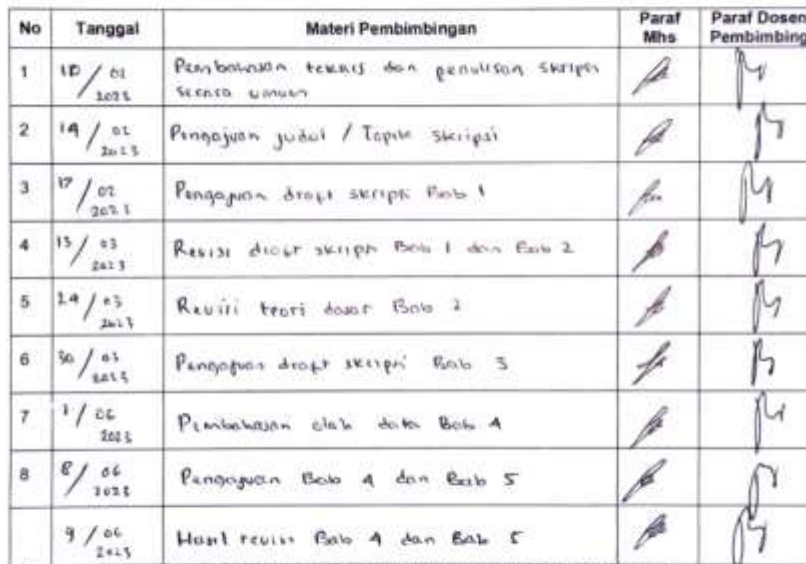 No Tanggal Materi Pembimbingan Paraf Mhs Paraf Dosen Pembimbing
1 10/02 2023 Pembahasan teknis dan penulisan skripsi
secara umum
2 14/02 2023 Pengajuan judul / Topik skripsi
3 17/02 2023 Pengajuan draft skripsi Bab 1
4 13/03 2023 Revisi draft skripsi Bab 1 dan Bab 2
5 24/03 2023 Revisi teori dasar Bab 2
6 30/03 2023 Pengajuan draft skripsi Bab 3
7 /06 2023 Pembahasan olah data Bab 4
8 8/06 2023 Pengajuan Bab 4 dan Bab 5
9/06 2023 Hasil revisi Bab 4 dan Bab 5